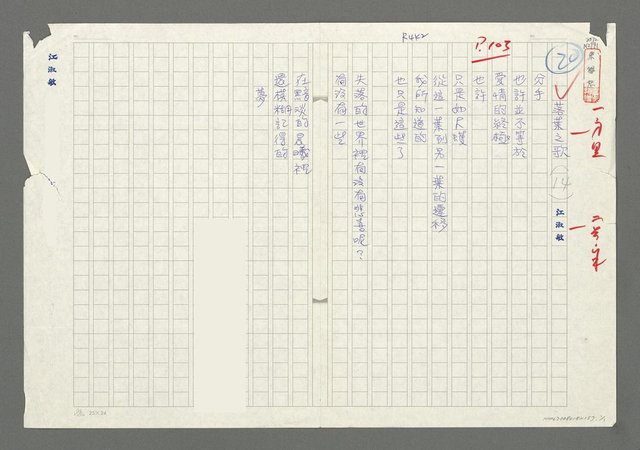 20
落葉之歌 (14)
江淑敏
二号宋
分手
也許並不等於
愛情的終極
也許
P.103
只是如尺蠖
從這一葉到另一葉的遷移
我所知道的
R4K2
也只是這些了
失落的世界裡有沒有悲喜呢？
有沒有一些
在黯淡的晨曦裡
還模糊記得的
夢
江淑敏
25X24